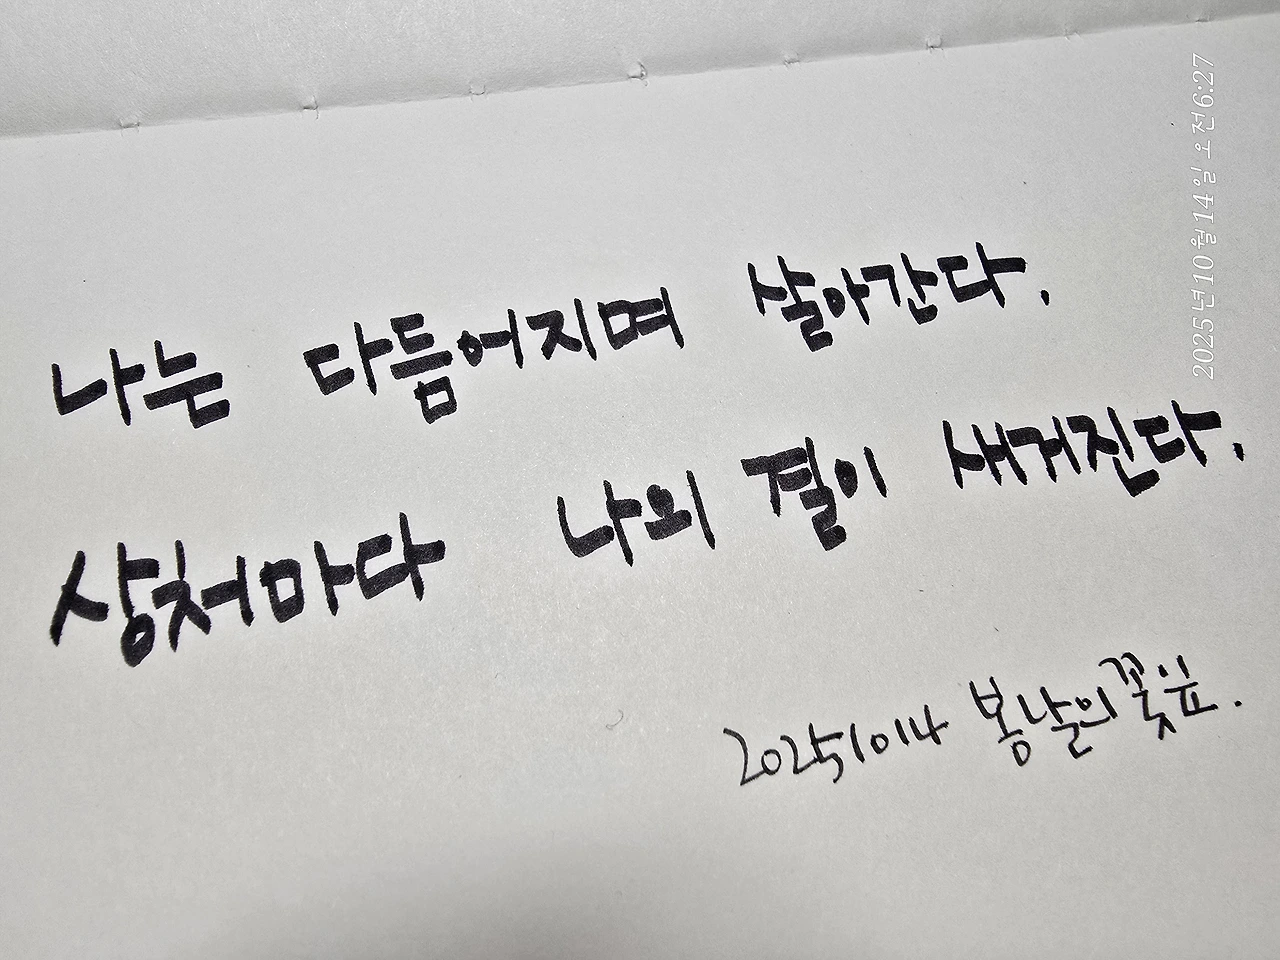 나는 다듬어지며 살아간다.
상처마다 나의 결이 새겨진다.
20251014 봄날의꽃잎.
2025년 10월 14일 오전 6:27